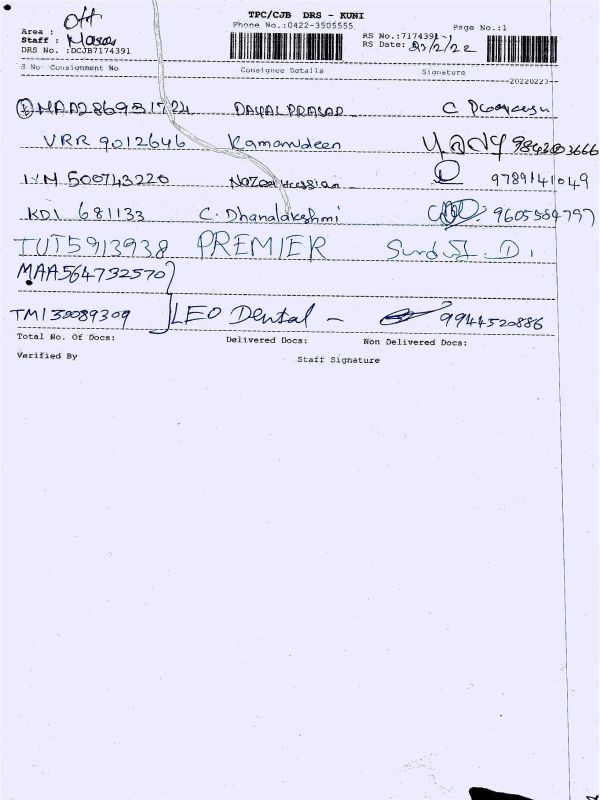 TPC/CJB DRS - KUNI
Phone No.:0422-3505555 Page No.:1
Area :
Staff :
DRS No. :DCJB7174391
RS No.:7174391-1
RS Date: 23/2/22
S No Consignment No Consignee Details Signature
20220223
① MAA286951724 DAYAL PRASAD
VRR 9012646 Kamarudeen 9842603666
500743220 9789141049
KDI 681133 C. Dhanalakshmi 9605564797
TUT5913938 PREMIER
MAA564732570
TMI30089309 LEO Dental - 9944520886
Total No. Of Docs: Delivered Docs: Non Delivered Docs:
Verified By Staff Signature